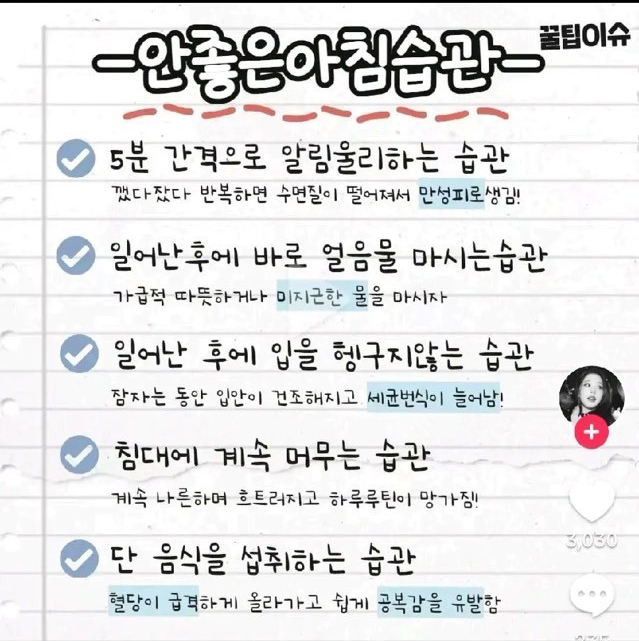 꿀팁이슈
안좋은아침습관
5분 간격으로 알림울리하는 습관
깼다잤다 반복하면 수면질이 떨어져서 만성피로생김!
일어난후에 바로 얼음물 마시는습관
가급적 따뜻하거나 미지근한 물을 마시자
일어난 후에 입을 헹구지않는 습관
잠자는 동안 입안이 건조해지고 세균번식이 늘어남!
침대에 계속 머무는 습관
계속 나른하며 흐트러지고 하루루틴이 망가짐!
단 음식을 섭취하는 습관
혈당이 급격하게 올라가고 쉽게 공복감을 유발함
3,030